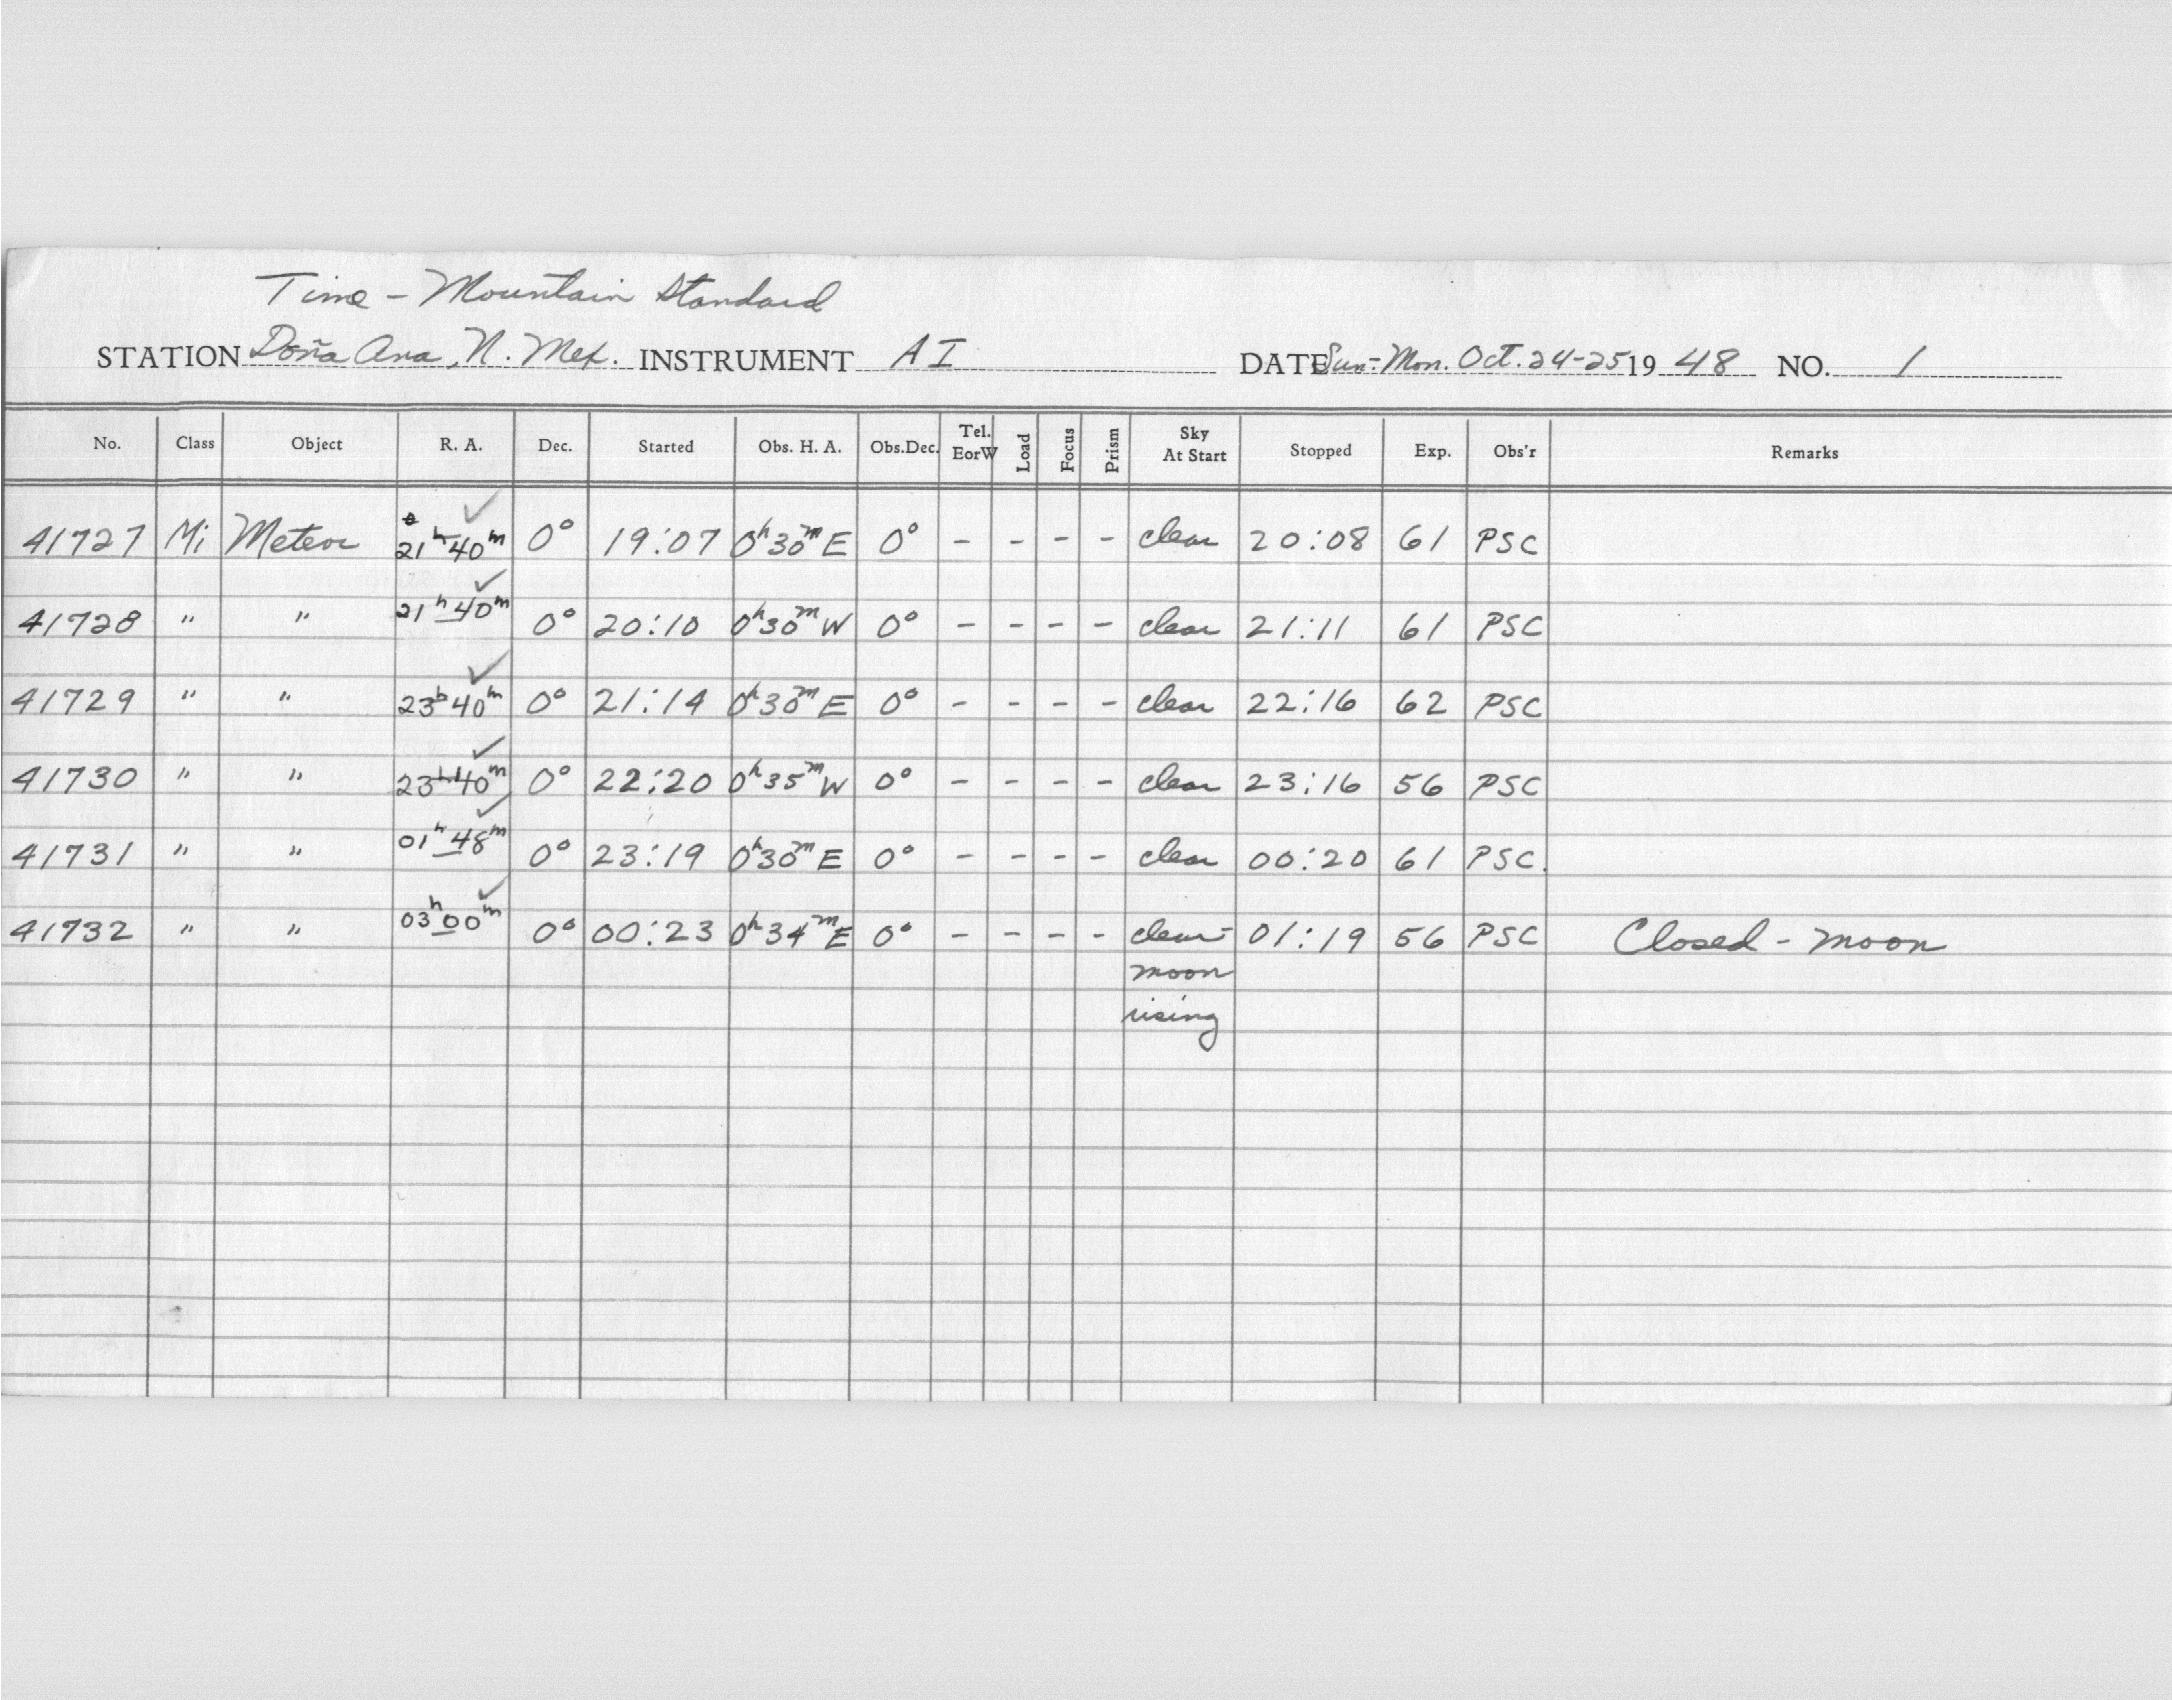 Time - Mountain Standard
STATION Doña Ana, N. Mex. INSTRUMENT AI DATE Sun.-Mon. Oct. 24-25 19 48 NO. 1
No. Class Object R. A. Dec. Started Obs. H. A. Obs.Dec. Tel. EorW Load Focus Prism Sky At Start Stopped Exp. Obs'r Remarks
41727 Mi Meteor 21h 40m ✓ 0° 19:07 0h30m E 0° - - - - clear 20:08 61 PSC
41728 " " 21h 40m ✓ 0° 20:10 0h30m W 0° - - - - clear 21:11 61 PSC
41729 " " 23h 40m ✓ 0° 21:14 0h30m E 0° - - - - clear 22:16 62 PSC
41730 " " 23h 40m ✓ 0° 22:20 0h35m W 0° - - - - clear 23:16 56 PSC
41731 " " 01h 48m ✓ 0° 23:19 0h30m E 0° - - - - clear 00:20 61 PSC.
41732 " " 03h 00m ✓ 0° 00:23 0h34m E 0° - - - - clear- 01:19 56 PSC Closed - moon
moon
rising